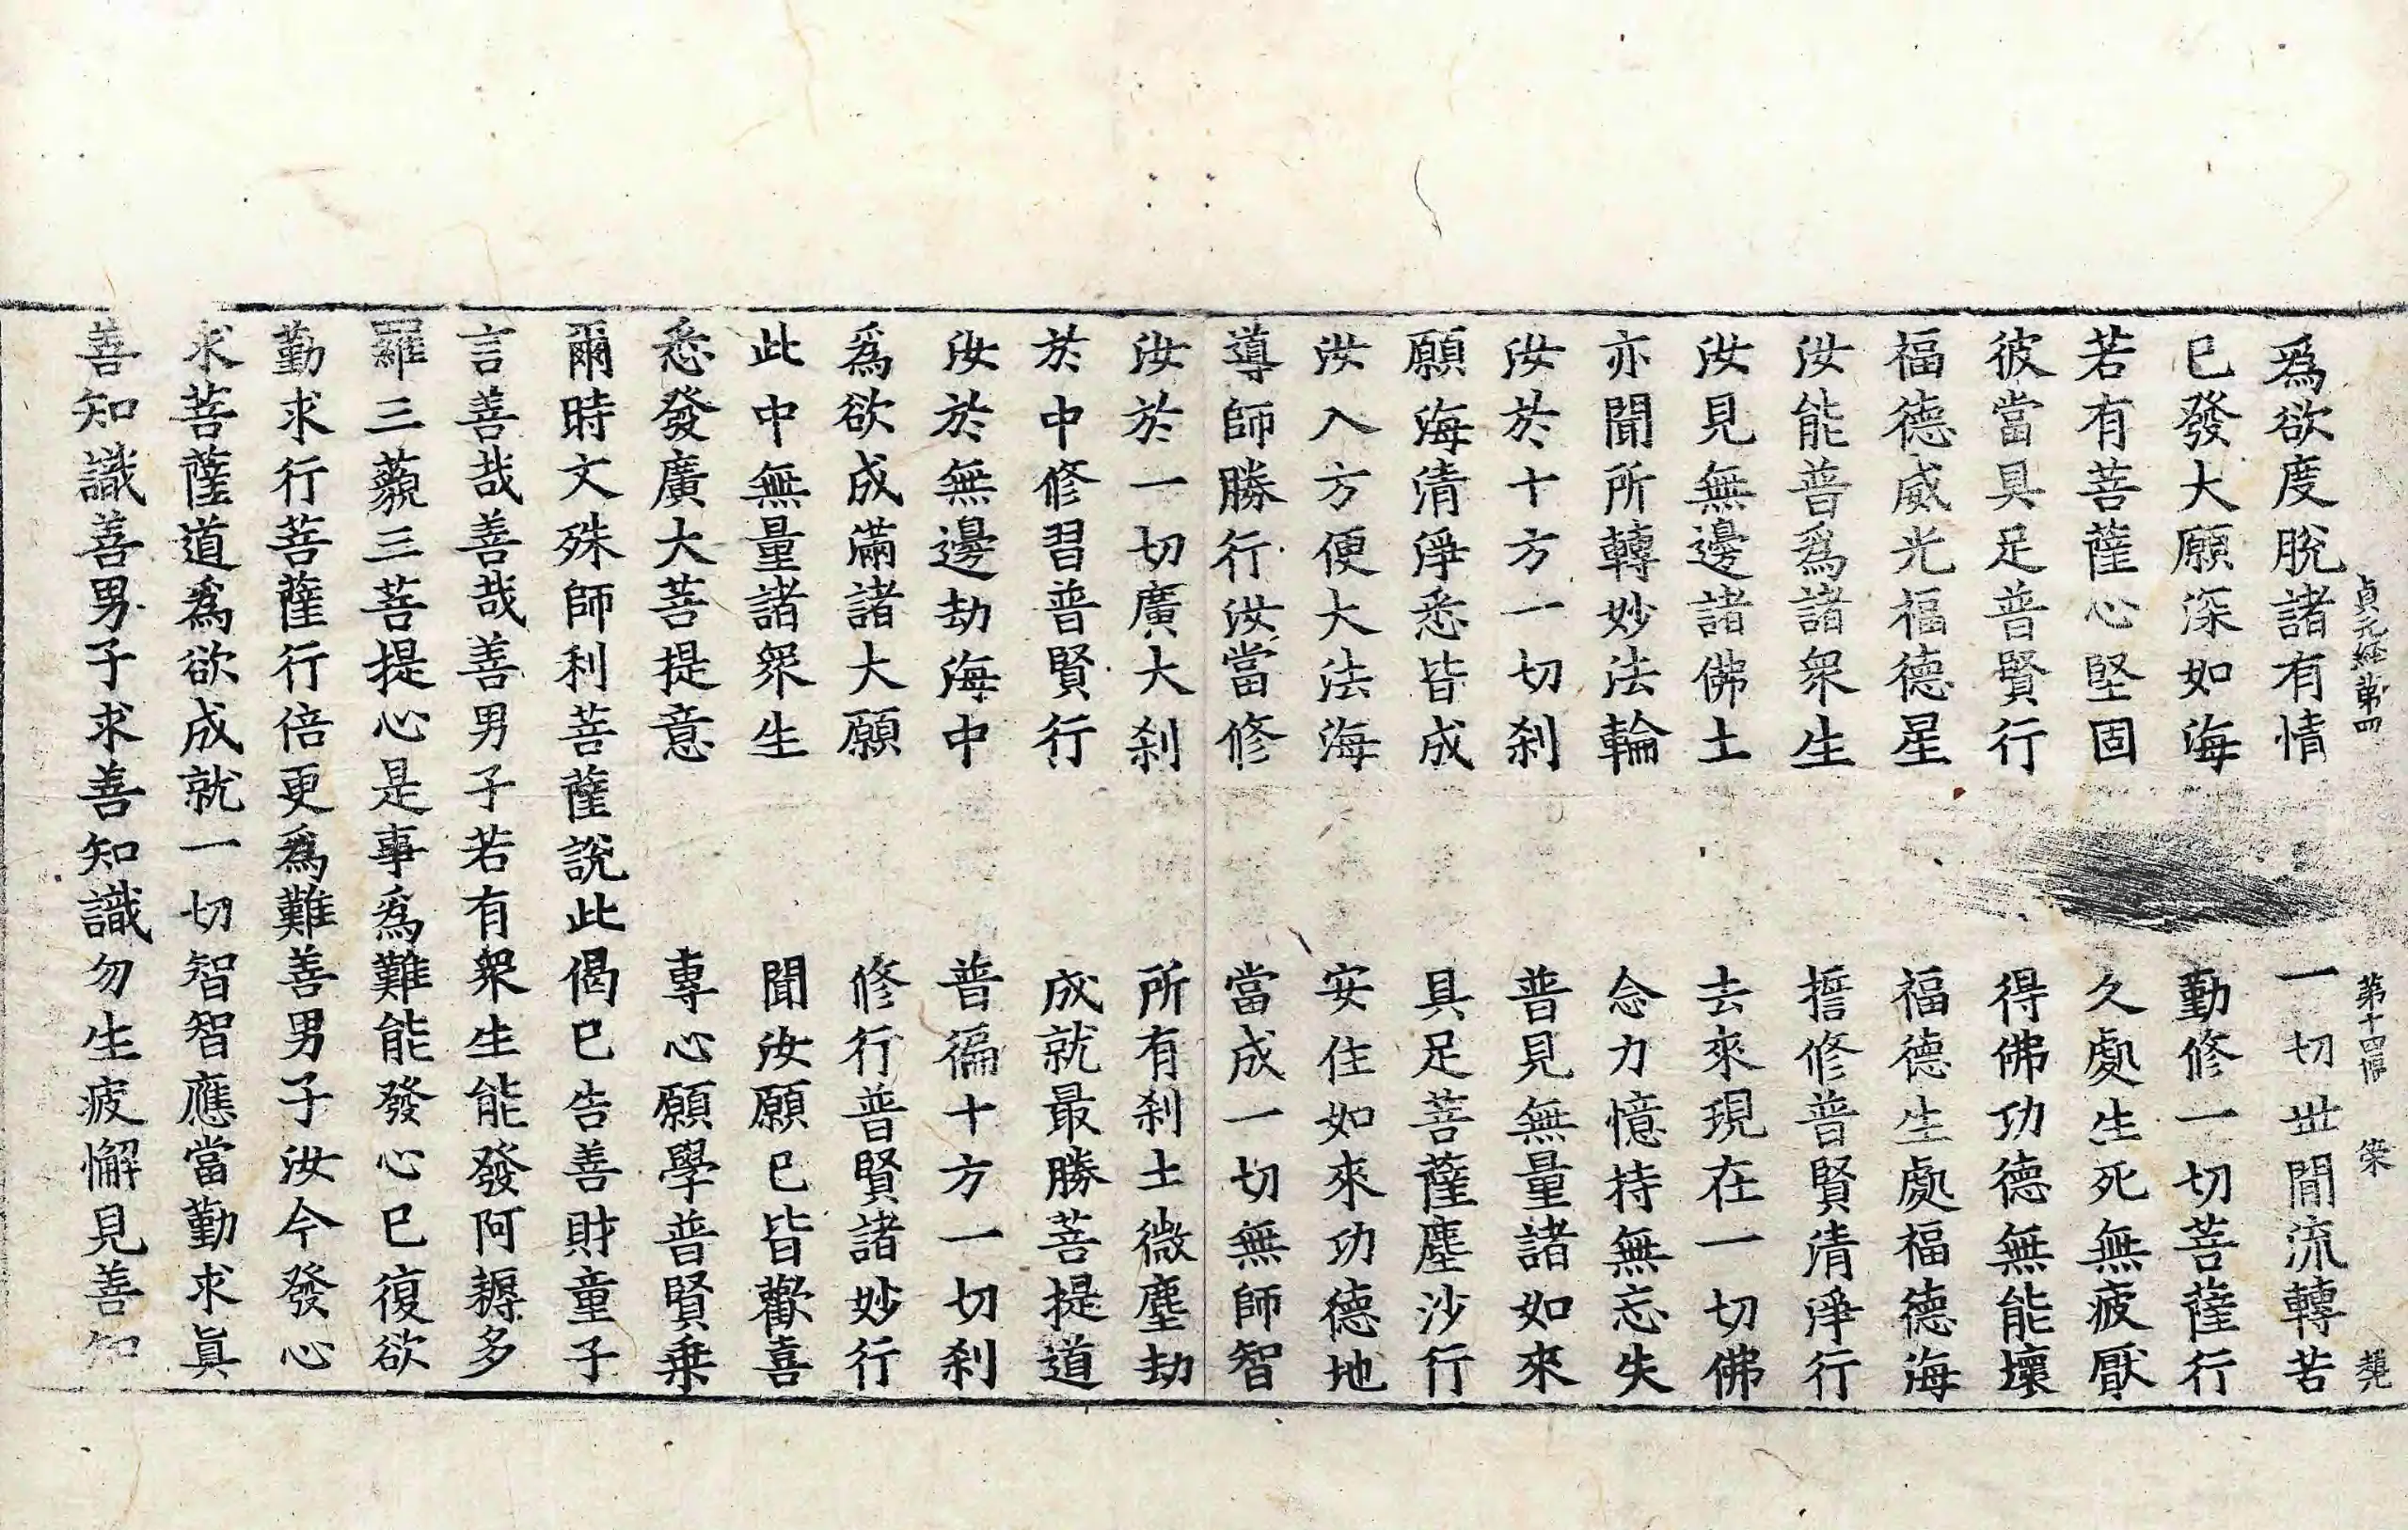 貞元経第四 第十四張 榮
爲欲度脫諸有情 一切世閒流轉苦
已發大願深如海 勤修一切菩薩行
若有菩薩心堅固 久處生死無疲厭
彼當具足普賢行 得佛功德無能壞
福德威光福德星 福德生處福德海
汝能普爲諸衆生 誓修普賢清淨行
汝見無邊諸佛土 去來現在一切佛
亦聞所轉妙法輪 念力憶持無忘失
汝於十方一切刹 普見無量諸如來
願海清淨悉皆成 具足菩薩塵沙行
汝入方便大法海 安住如來功德地
導師勝行汝當修 當成一切無師智
汝於一切廣大刹 所有刹土微塵劫
於中修習普賢行 成就最勝菩提道
汝於無邊劫海中 普徧十方一切刹
爲欲成滿諸大願 修行普賢諸妙行
此中無量諸衆生 聞汝願已皆歡喜
悉發廣大菩提意 專心願學普賢乗
爾時文殊師利菩薩說此偈已告善財童子
言善哉善哉善男子若有衆生能發阿耨多
羅三藐三菩提心是事爲難能發心已復欲
勤求行菩薩行倍更爲難善男子汝今發心
求菩薩道爲欲成就一切智智應當勤求眞
善知識善男子求善知識勿生疲懈見善知